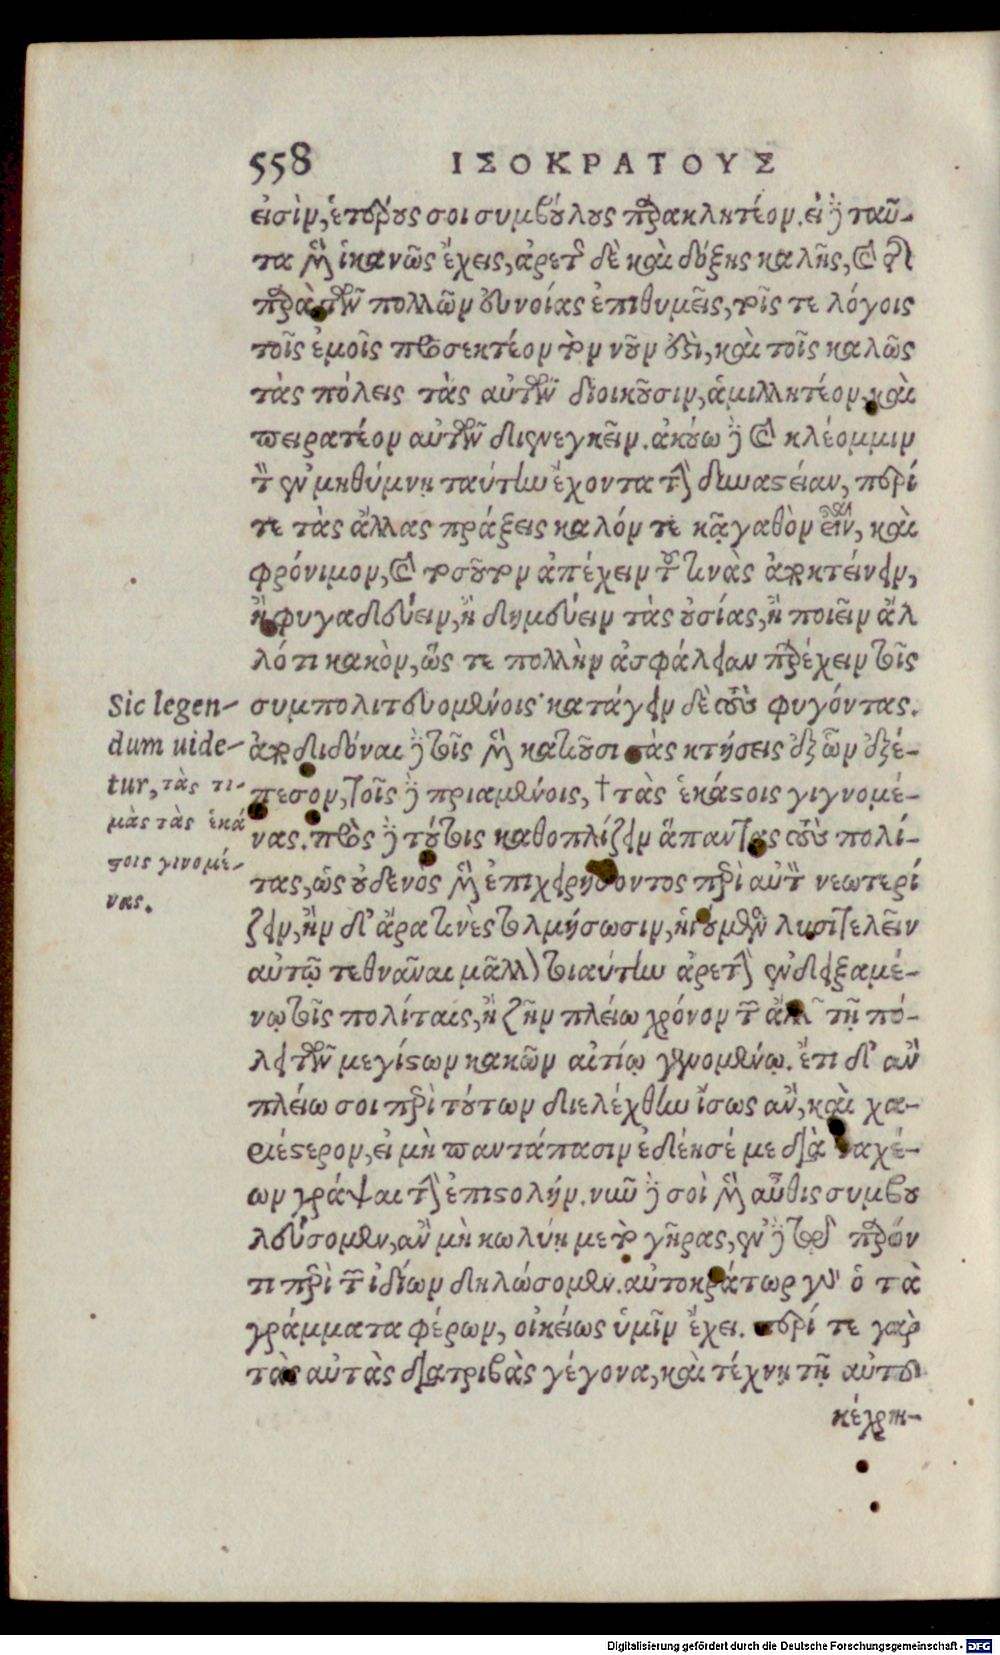 558 ΙΣΟΚΡΑΤΟΥΣ
εἰσὶν, ἑτέρους σοι συμβούλους παρακλητέον. εἰ δὲ ταῦ-
τα μὲν ἱκανῶς ἔχεις, ἀρετῆς δὲ καὶ δόξης καλῆς, καὶ τῆς
παρὰ τῶν πολλῶν εὐνοίας ἐπιθυμεῖς, τοῖς τε λόγοις
τοῖς ἐμοῖς προσεκτέον τὸν νοῦν ἐστὶ, καὶ τοῖς καλῶς
τὰς πόλεις τὰς αὐτῶν διοικοῦσιν, ἁμιλλητέον, καὶ
πειρατέον αὐτῶν διενεγκεῖν. ἀκούω δὲ καὶ κλέομμιν
τὸν ἐν μηθύμνῃ ταύτην ἔχοντα τὴν δυναστείαν, περί
τε τὰς ἄλλας πράξεις καλόν τε κᾀγαθὸν εἶναι, καὶ
φρόνιμον, καὶ τοσοῦτον ἀπέχειν τοῦ τινὰς ἀποκτείνειν,
ἢ φυγαδεύειν, ἢ δημεύειν τὰς οὐσίας, ἢ ποιεῖν ἄλ
λό τι κακὸν, ὥς τε πολλὴν ἀσφάλειαν παρέχειν τοῖς
Sic legen- συμπολιτευομένοις· κατάγειν δὲ τοὺς φυγόντας.
dum uide- ἀποδιδόναι δὲ τοῖς μὲν κατιοῦσι τὰς κτήσεις ἐξ ὧν ἐξέ-
tur, τὰς τι- πεσον, τοῖς δὲ πριαμένοις, † τὰς ἑκάστοις γιγνομέ-
μὰς τὰς ἑκά νας. πρὸς δὲ τούτοις καθοπλίζειν ἅπαντας τοὺς πολί-
στοις γινομέ- τας, ὡς οὐδενὸς μὲν ἐπιχειρήσοντος περὶ αὐτὸν νεωτερί
νας. ζειν, ἢν δ' ἄρα τινὲς τολμήσωσιν, ἡγούμενον λυσιτελεῖν
αὐτῷ τεθνᾶναι μᾶλλον τοιαύτην ἀρετὴν ἐνδειξαμέ-
νῳ τοῖς πολίταις, ἢ ζῆν πλείω χρόνον τῶν ἄλλων τῇ πό-
λει τῶν μεγίστων κακῶν αἰτίῳ γενομένῳ. ἔτι δ' ἂν
πλείω σοι περὶ τούτων διελέχθην ἴσως ἂν, καὶ χα-
ριέστερον, εἰ μὴ παντάπασιν ἐδέησέ με διὰ ταχέ-
ων γράψαι τὴν ἐπιστολήν. νῦν δὲ σοὶ μὲν αὖθις συμβου
λεύσομεν, ἂν μὴ κωλύῃ με τὸ γῆρας, ἐν δὲ τῷ παρόν
τι περὶ τῶν ἰδίων δηλώσομεν. αὐτοκράτωρ γὰρ ὁ τὰ
γράμματα φέρων, οἰκείως ὑμῖν ἔχει. περί τε γὰρ
τὰς αὐτὰς διατριβὰς γέγονα, καὶ τέχνῃ τῇ αὐτοῦ
κέχρη-
Digitalisierung gefördert durch die Deutsche Forschungsgemeinschaft - DFG